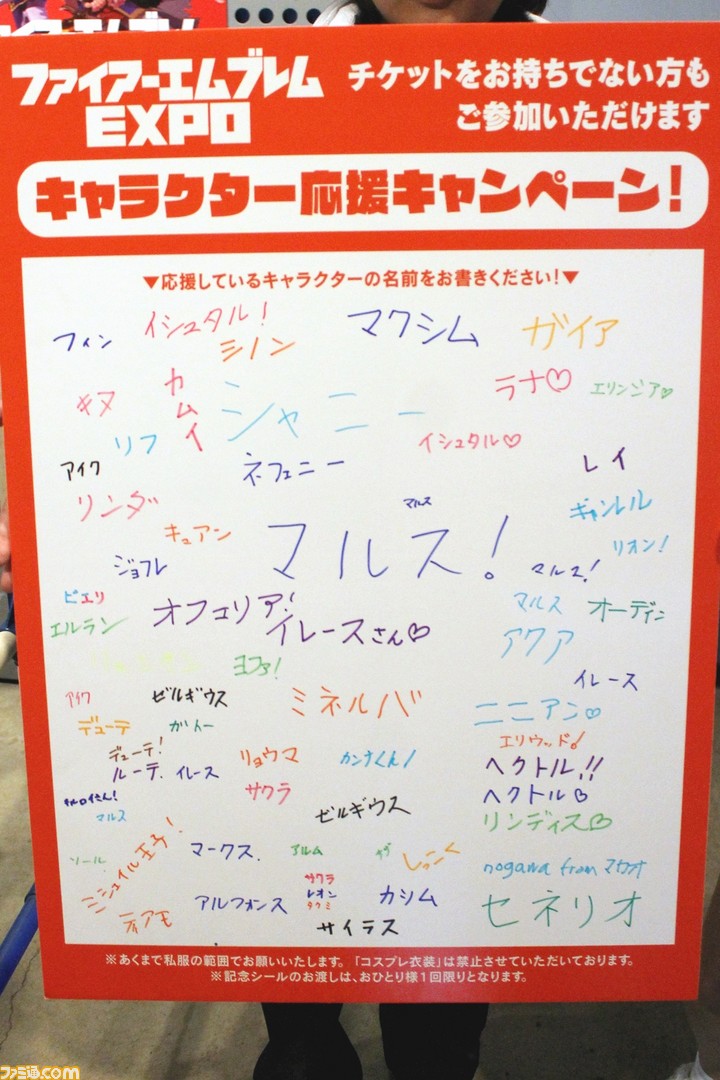 ファイアーエムブレム
EXPO
チケットをお持ちでない方も
ご参加いただけます
キャラクター応援キャンペーン!
▼応援しているキャラクターの名前をお書きください!▼
フィン
イシュタル!
シノン
マクシム
ガイア
キヌ
カムイ
シャニー
ラナ♡
エリンジア♡
リフ
イシュタル♡
アイク
ネフェニー
レイ
リンダ
マルス
ギャンレル
キュアン
マルス!
リオン!
ジョフレ
マルス!
ピエリ
オフェリア!
マルス
オーディン
エルラン
イレースさん♡
アクア
ヨファ!
イレース
アイク
ゼルギウス
ミネルバ
ニニアン♡
デューテ
ガトー
エリウッド!
デューテ!
リョウマ
カンナくん!
ヘクトル!!
ルーテ.
イレース
サクラ
ヘクトル♡
マルス
ゼルギウス
リンディス♡
ミシェイル王子!
マークス.
アルム
しっこく
nogawa from マカオ
ソール
サクラ
レオン
タクミ
カシム
セネリオ
ティアモ
アルフォンス
サイラス
※あくまで私服の範囲でお願いいたします。「コスプレ衣装」は禁止させていただいております。
※記念シールのお渡しは、おひとり様1回限りとなります。
ファミ通.com